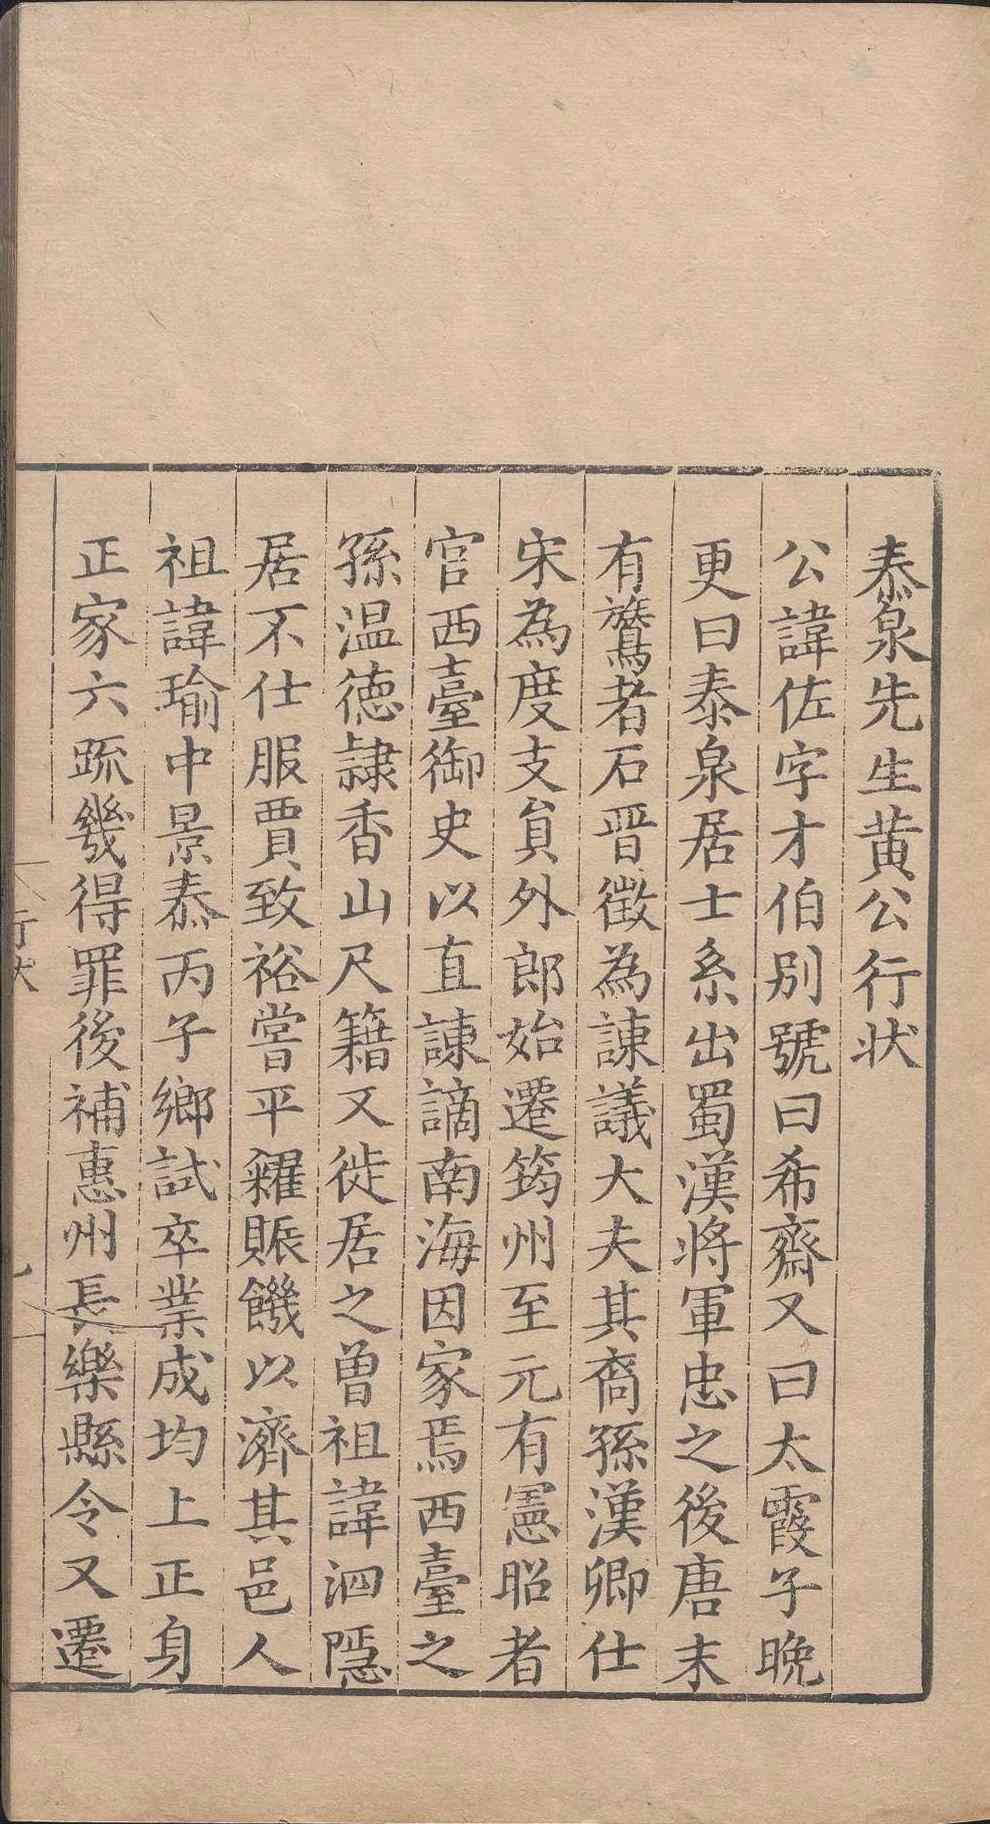 泰泉先生黃公行狀
公諱佐字才伯別號曰希齋又曰太霞子晚
更曰泰泉居士系出蜀漢將軍忠之後唐末
有鷟者石晉徵為諫議大夫其裔孫漢卿仕
宋為度支員外郎始遷筠州至元有憲昭者
官西臺御史以直諫謫南海因家焉西臺之
孫温德隸香山尺籍又徙居之曾祖諱泗隱
居不仕服賈致裕嘗平糴賑饑以濟其邑人
祖諱瑜中景泰丙子鄉試卒業成均上正身
正家六疏幾得罪後補惠州長樂縣令又遷
行狀